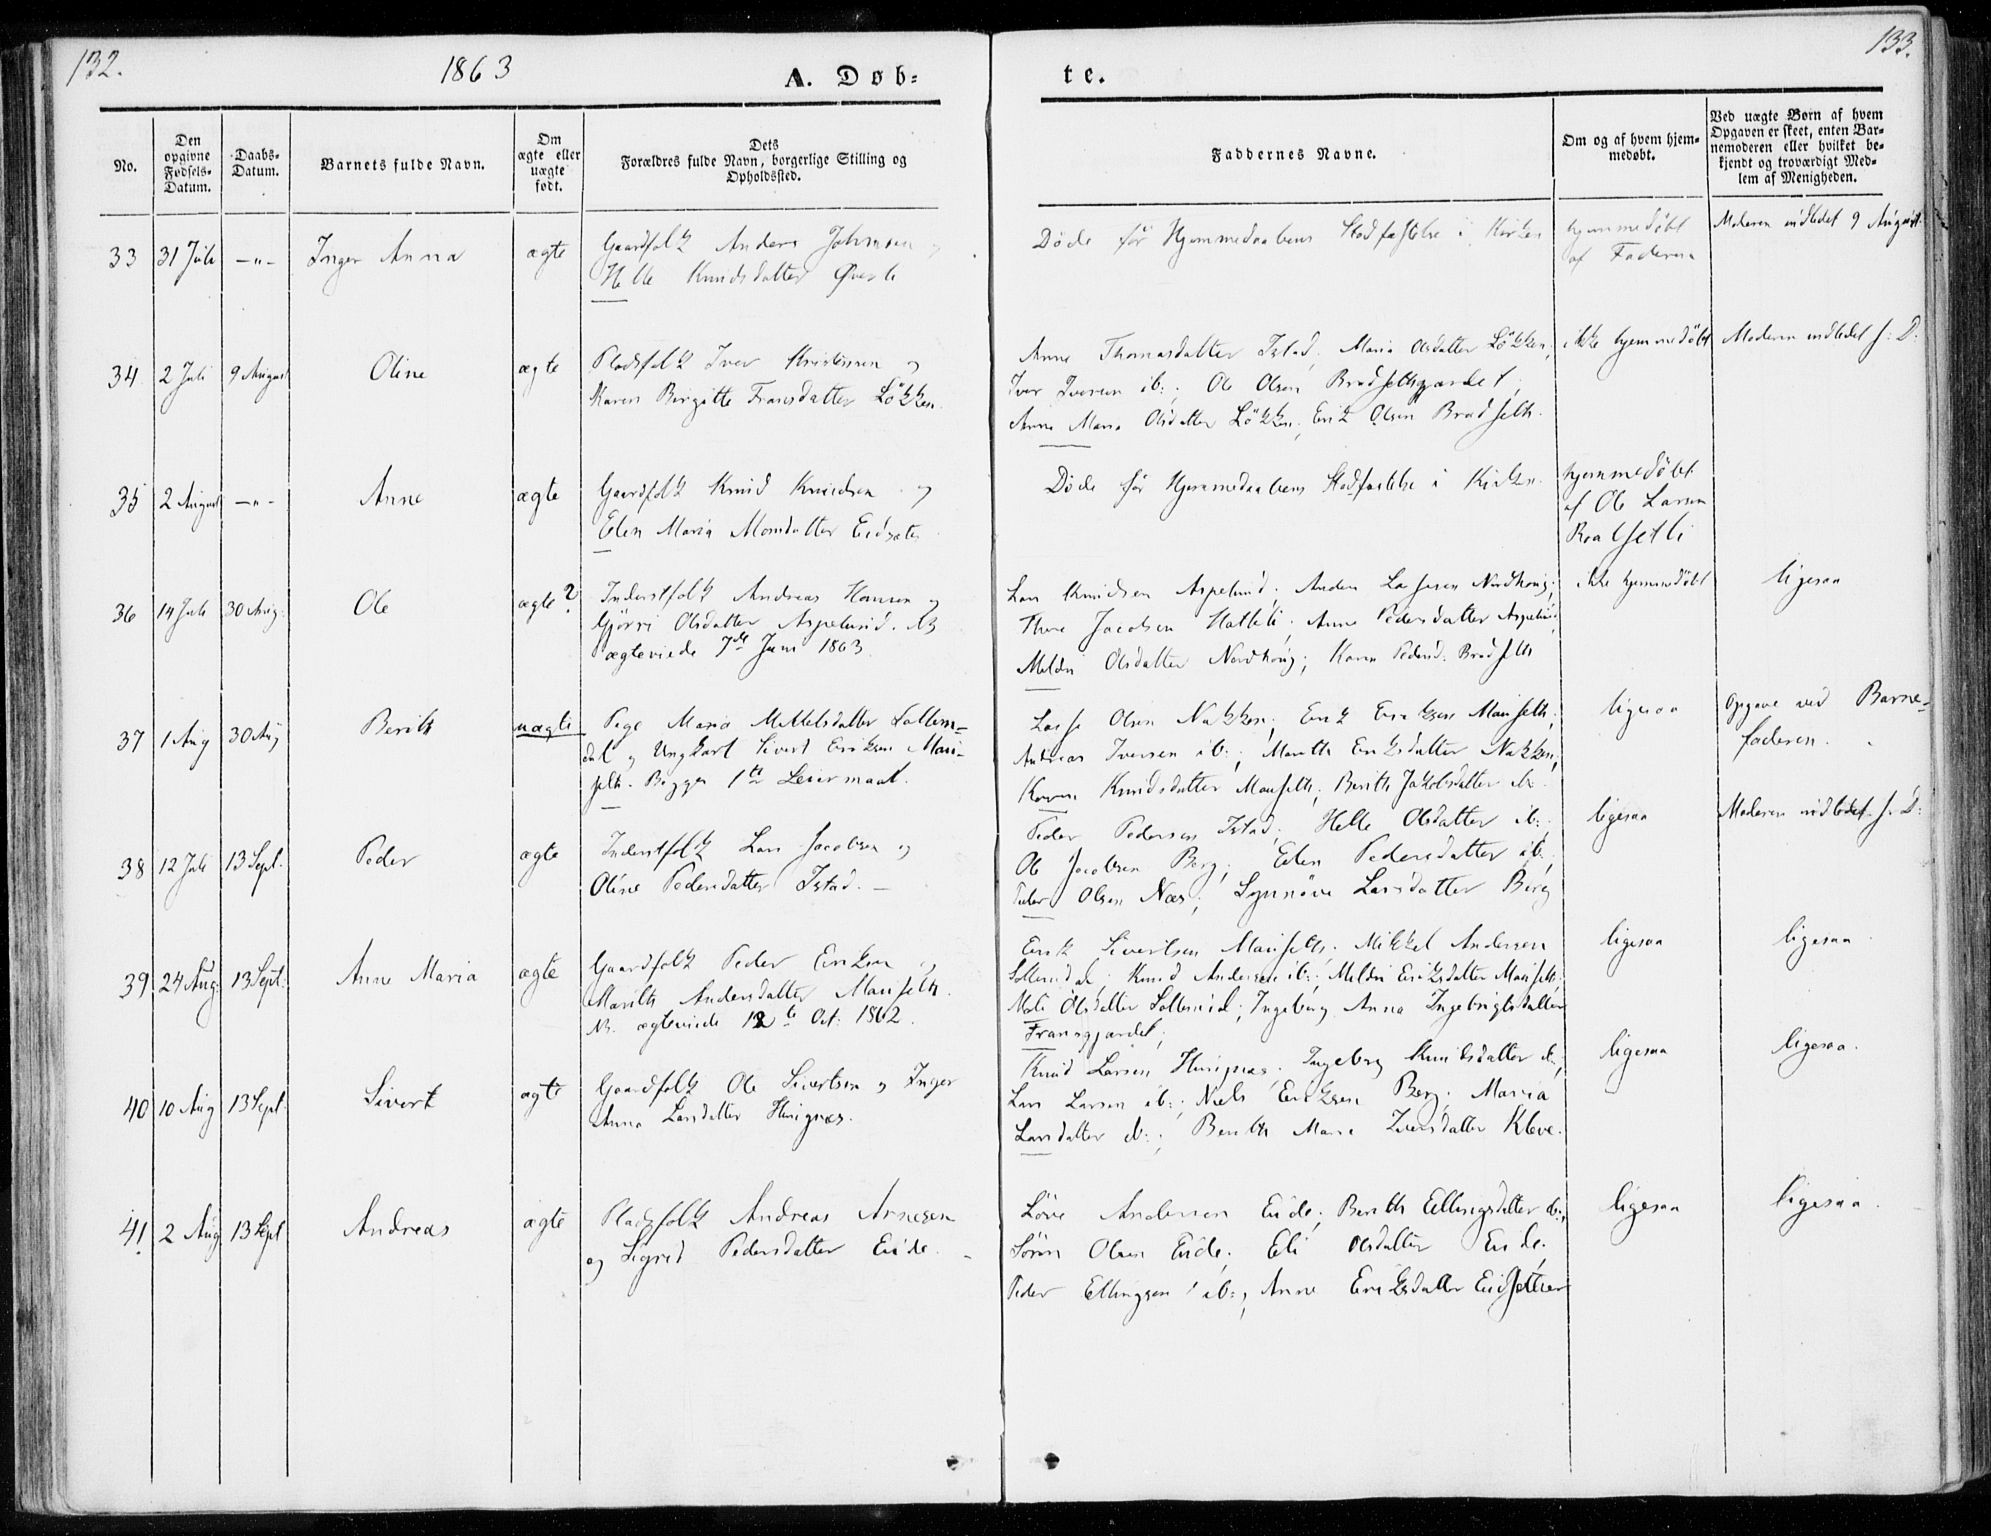 132.
1863
A. Døb-
te.
133.
No.
Den
opgivne
Fødsels-
Datum.
Daabs-
Datum.
Barnets fulde Navn.
Om
ægte eller
uægte
født.
Dets
Forældres fulde Navn, borgerlige Stilling og
Opholdssted.
Faddernes Navne.
Om og af hvem hjem-
medøbt.
Ved uægte Børn af hvem
Opgaven er skeet, enten Bar-
nemoderen eller hvilket be-
kjendt og troværdigt Med-
lem af Menigheden.
33 31 Juli -"- Inger Anna ægte
Gaardfolk Anders Johnsen og
Helle Knudsdatter
Døde før Hjemmedaabens Stadfæstelse i Kirken
hjemmedøbt
af Faderen
Moderen indledet 9 August.
34 2 Juli 9 August Oline ægte
Pladsfolk Iver Kristensen og
Karen Birgitte Fransdatter Løkken.
Anne Thomasdatter Istad; Maria Olsdatter Løkken;
Iver Iversen ib:; Ole Olsen Bradsethgjærdet;
Anne Maria Olsdatter Løkken; Erik Olsen Bradseth.
ikke hjemmedøbt
Moderen indledet s: D:
35 2 August -"- Anne ægte
Gaardfolk Knud Knudsen og
Elen Maria Monsdatter Eidsæter
Døde før Hjemmedaabens Stadfæstelse i Kirken.
hjemmedøbt
af Ole Larsen
36 14 Juli 30 Aug: Ole ægte?
Inderstfolk Andreas Hansen og
Gjørri Olsdatter Aspelund. NB
ægteviede 7de Juni 1863.
Lars Knudsen Aspelund; Anders Lassesen Nordhoug;
Thore Jacobsen Hatleli; Anne Pedersdatter Aspelund;
Meldri Olsdatter Nordhoug; Karen Pedersd: Bradseth
ikke hjemmedøbt
ligesaa
37 1 Aug 30 Aug Berith uægte
Pige Maria Mikkelsdatter Sollem-
dal og Ungkarl Sivert Eriksen Mau-
seth. Begges 1ste Leiermaal.
Lasse Olsen Nakken; Erik Eriksen Mauseth;
Andreas Iversen ib:; Marith Eriksdatter Nakken;
Karen Knudsdatter Mauseth; Berith Jakobsdatter ib:
ligesaa
Opgave ved Barne-
faderen.
38 12 Juli 13 Sept. Peder ægte
Inderstfolk Lars Jacobsen og
Oline Pedersdatter Istad. —
Peder Pedersen Istad; Helle Olsdatter ib:;
Ole Jacobsen Berg; Elen Pedersdatter ib:;
Peder Olsen Næs; Synnöve Larsdatter Berg
ligesaa
Moderen indledet s: D:
39 24 Aug: 13 Sept: Anne Maria ægte
Gaardfolk Peder Eriksen og
Marith Andersdatter Mauseth.
NB. ægteviede 12te Oct: 1862.
Erik Sivertsen Mauseth; Mikkel Andersen
Sollemdal; Knud Andersen ib:; Meldri Eriksdatter Mauseth;
Olsdatter Sollemdal; Ingeborg Anna Ingebrigtsdatter
Fransgjærdet;
ligesaa
ligesaa
40 10 Aug 13 Sept: Sivert ægte
Gaardfolk Ole Sivertsen og Inger
Anna Larsdatter Husignæs.
Knud Larsen Husignæs; Ingeborg Knudsdatter ib:;
Lars Larsen ib:; Niels Eriksen Berg; Maria
Larsdatter ib:; Berith Marie Iversdatter Kleve.
ligesaa
ligesaa.
41. 2 Aug 13 Sept Andreas ægte
Pladsfolk Andreas Arnesen
og Sigrid Pedersdatter Eide.
Andersen Eide; Berith Ellingsdatter ib:;
Søren Olsen Eide; Eli Olsdatter Eide;
Peder Ellingsen ib:; Anne Eriksdatter Eidsetter
ligesaa
ligesaa.